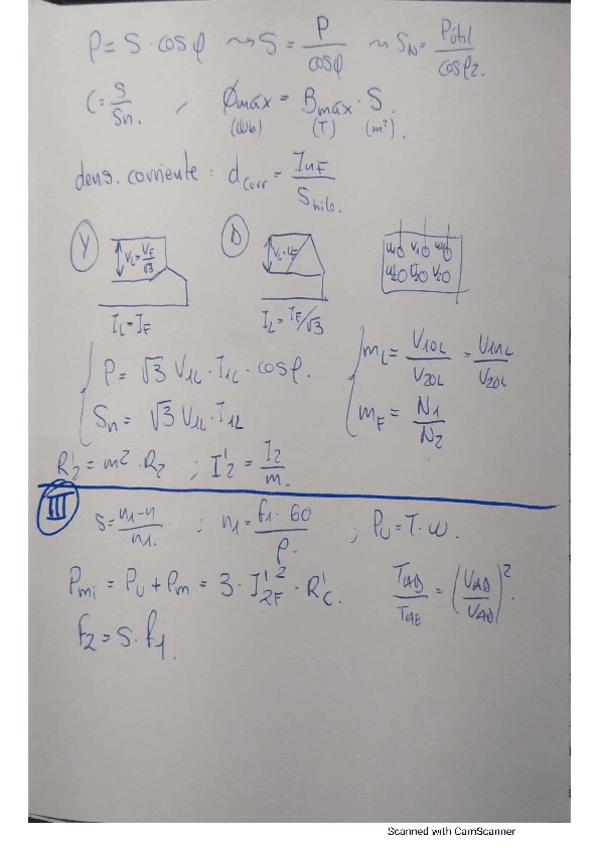 P = S · cosφ ⇝ S = P/cosφ ⇝ S_N = Pútil/cosφ2.
C = S/Sn. , Ømáx = Bmáx · S.
(Wb) (T) (m²).
dens. corriente : d_corr = I_nF/S_hilo.
Y
V_L = V_F/√3
I_L = I_F
D
I_L = I_F/√3
P = √3 V_1L · I_1L · cosφ.
m_L = V_10L/V_20L = V_1nL/V_20L
S_n = √3 V_1L · I_1L
m_F = N_1/N_2
R'_2 = m² · R_2 ; I'_2 = I_2/m.
III
s = n_1-n/n_1. ; n_1 = f_1 · 60/p. ; P_U = T · ω.
P_mi = P_U + P_m = 3 · I'_2F² · R'_C.
T_AD/T_AE = (V_AD/V_AD)².
F_2 = s · f_1.
Scanned with CamScanner